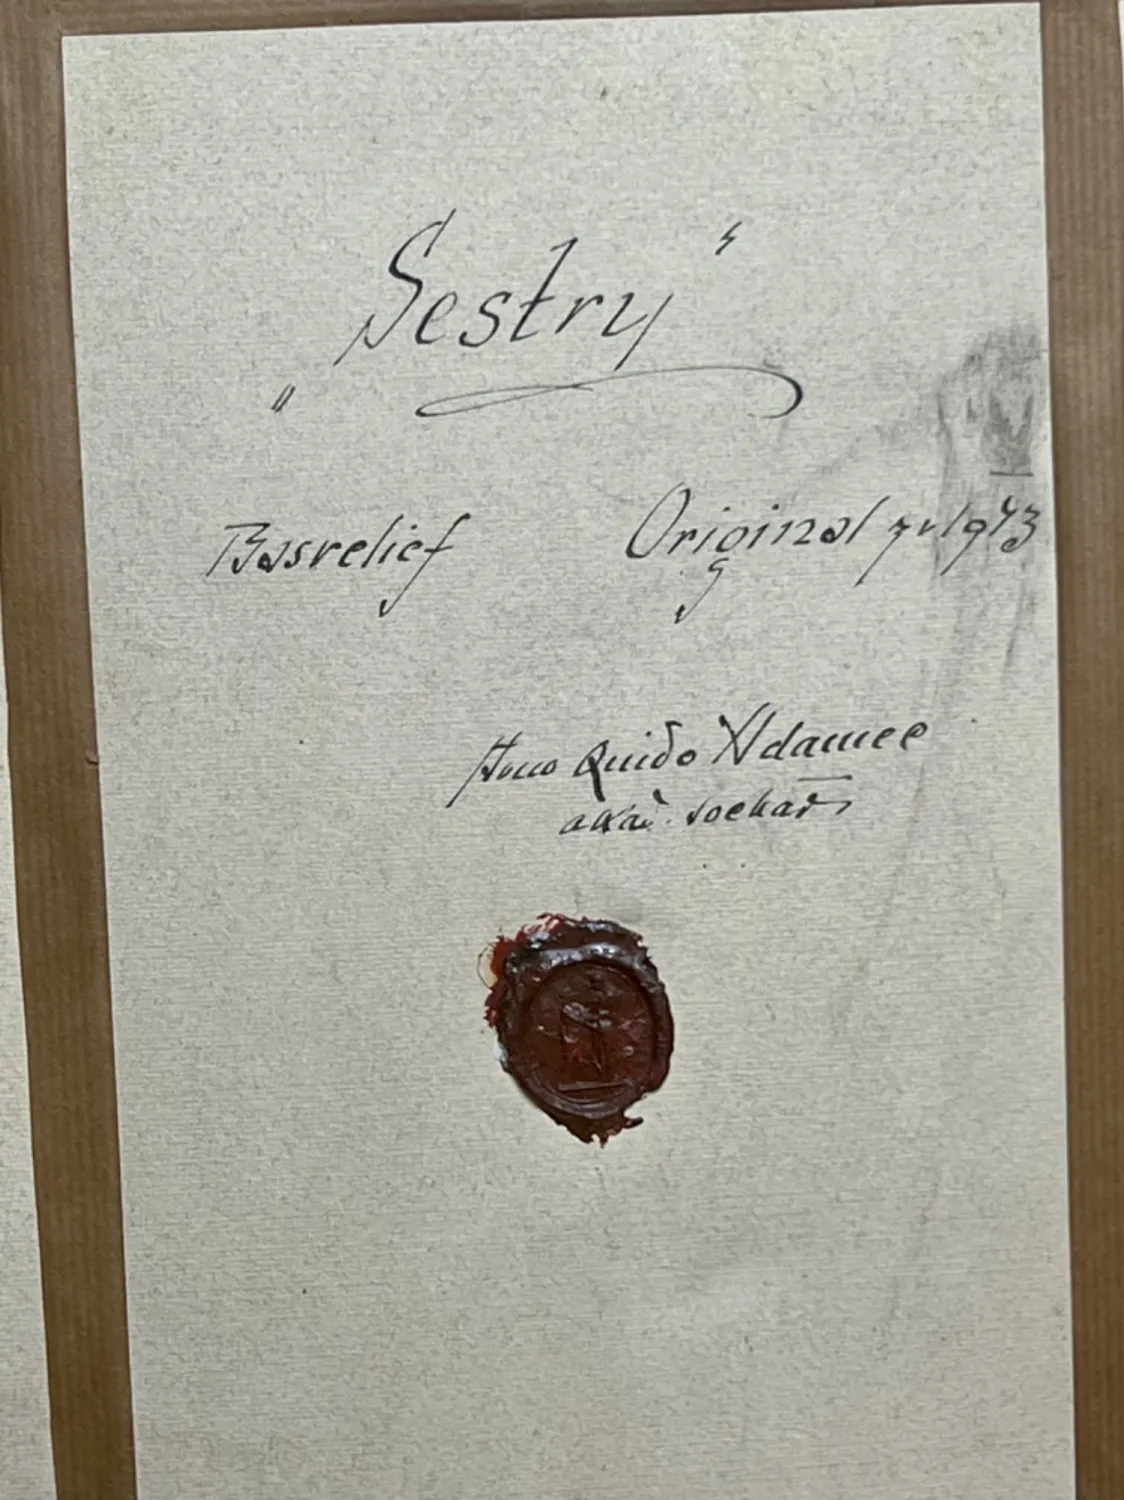 „Sestry"
Basrelief Original z r 1943
Quido Adamec
akad. sochař